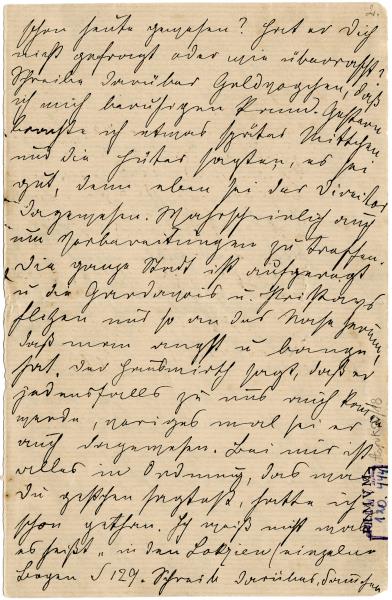 schon heute gewesen? Hat er Dich
nicht gefragt oder wie überrascht.
Schreibe darüber Goldvogchen, daß
ich mich beruhigen kann. Gestern
brachte ich etwas später Mittchen
und die Hüter sagten, es sei
gut, denn eben sei der Direktor
dagewesen. Wahrscheinlich auch
um Vorbereitungen zu treffen.
Die ganze Stadt ist aufgeregt
u die Gardawois u. Pristaws
flitzen nur so an der Nase herum,
daß mem angst u bange
hat. Der Hauswirth sagt, daß er
jedenfalls zu uns auch kommen
werde, voriges mal sei er
auch dagewesen. Bei mir ist
alles in Ordnung, das was
Du gestern sagtest, hatte ich
schon gethan. Ich weiß nicht was
es heißt „in den Lotzien (einzelne
Bogen S 129. Schreib darüber,